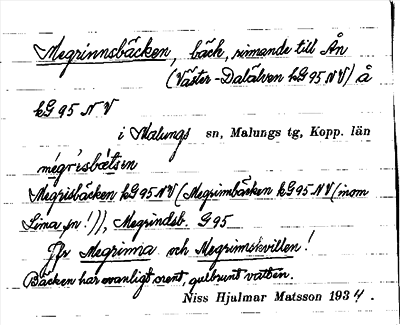 Megrinnsbäcken, bäck, rinnande till Ån
(Väster-Dalälven kG 95 NV) å
kG 95 NV
i Malungs sn, Malungs tg, Kopp. län
mégrisbètsen
Megrisbäcken kG 95 NV (Megrimbäcken kG 95 NV (inom
Lima sn!)), Megrindsb. G 95
Jfr Megrinna och Megrimskvillen!
Bäcken har ovanligt orent, gulbrunt vatten.
Niss Hjalmar Matsson 1934.